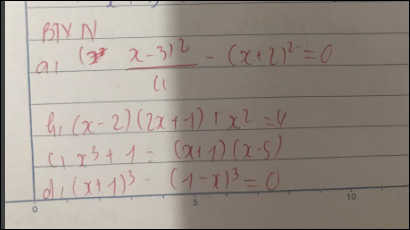 BTVN
a, (x-3)² / 4 - (x+2)² = 0
b, (x-2)(2x+1) + x² = 4
c, x³ + 1 = (x+1)(x-5)
d, (x+1)³ - (1-x)³ = 0
0 5 10